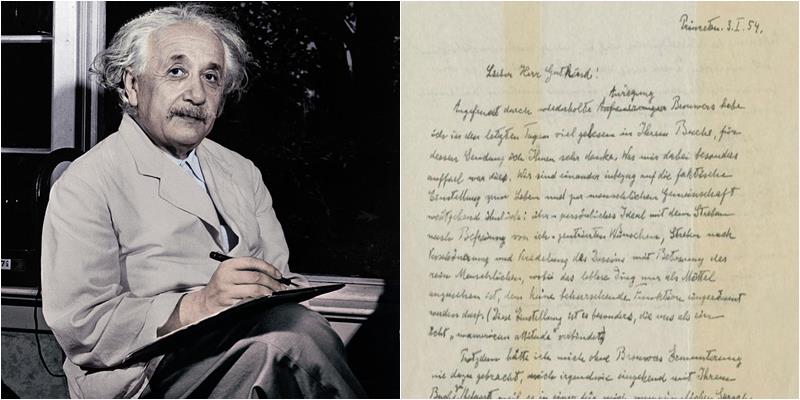 Princeton. 3. I. 54.
Lieber Herr Gutkind!
Anregung
Angefeuert durch wiederholte Brouwers habe
ich in den letzten Tagen viel gelesen in Ihrem Buche, für
dessen Sendung ich Ihnen sehr danke. Was mir dabei besonders
auffiel war dies. Wir sind einander inbezug auf die faktische
Einstellung zum Leben und zur menschlichen Gemeinschaft
weitgehend ähnlich: über-persönliches Ideal mit dem Streben
nach Befreiung von ich-zentrierten Wünschen, Streben nach
Verschönerung und Veredelung des Daseins mit Betonung des
rein Menschlichen, wobei das leblose Ding nur als Mittel
anzusehen ist, dem keine beherrschende Funktion eingeräumt
werden darf. (Diese Einstellung ist es besonders, die uns als ein
echt „unamerican attitude" verbindet)
Trotzdem hätte ich mich ohne Brouwers Ermunterung
nie dazu gebracht, mich irgendwie eingehend mit Ihrem
weil es in einer für mich Sprache